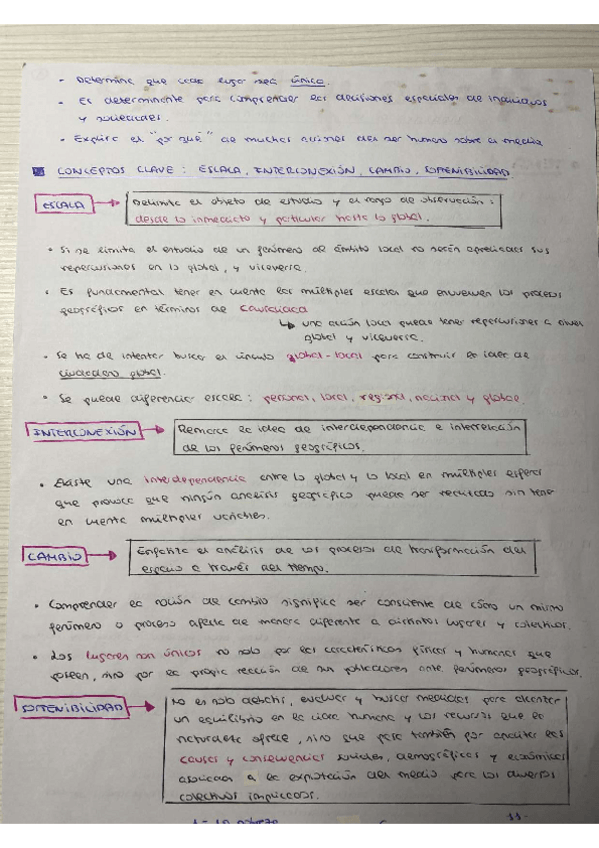 - Determina que cada lugar sea único.
- Es determinante para comprender las decisiones espaciales de individuos
y sociedades.
- Explica el "por qué" de muchas acciones del ser humano sobre el medio.
CONCEPTOS CLAVE: ESCALA, INTERCONEXIÓN, CAMBIO, SOSTENIBILIDAD
ESCALA → Delimita el objeto de estudio y el rango de observación:
desde lo inmediato y particular hasta lo global.
• Si se limita el estudio de un fenómeno al ámbito local no serán apreciadas sus
repercusiones en lo global, y viceversa.
• Es fundamental tener en cuenta las múltiples escalas que envuelven los procesos
geográficos en términos de causalidad
↳ una acción local puede tener repercusiones a nivel
global y viceversa.
• Se ha de intentar buscar el vínculo global-local para construir la idea de
ciudadano global.
• Se puede diferenciar escala: personal, local, regional, nacional y global.
INTERCONEXIÓN → Remarca la idea de interdependencia e interrelación
de los fenómenos geográficos.
• Existe una interdependencia entre lo global y lo local en múltiples esferas
que provoca que ningún análisis geográfico puede ser realizado sin tener
en cuenta múltiples variables.
CAMBIO → Enfatiza el análisis de los procesos de transformación del
espacio a través del tiempo.
• Comprender la noción de cambio significa ser consciente de cómo un mismo
fenómeno o proceso afecta de manera diferente a distintos lugares y colectivos.
• Los lugares son únicos no solo por las características físicas y humanas que
poseen, sino por la propia reacción de sus pobladores ante fenómenos geográficos.
SOSTENIBILIDAD → No es solo debatir, evaluar y buscar medidas para alcanzar
un equilibrio en la vida humana y los recursos que la
naturaleza ofrece, sino que pasa también por analizar las
causas y consecuencias sociales, demográficas y económicas
asociadas a la explotación del medio para los diversos
colectivos implicados.